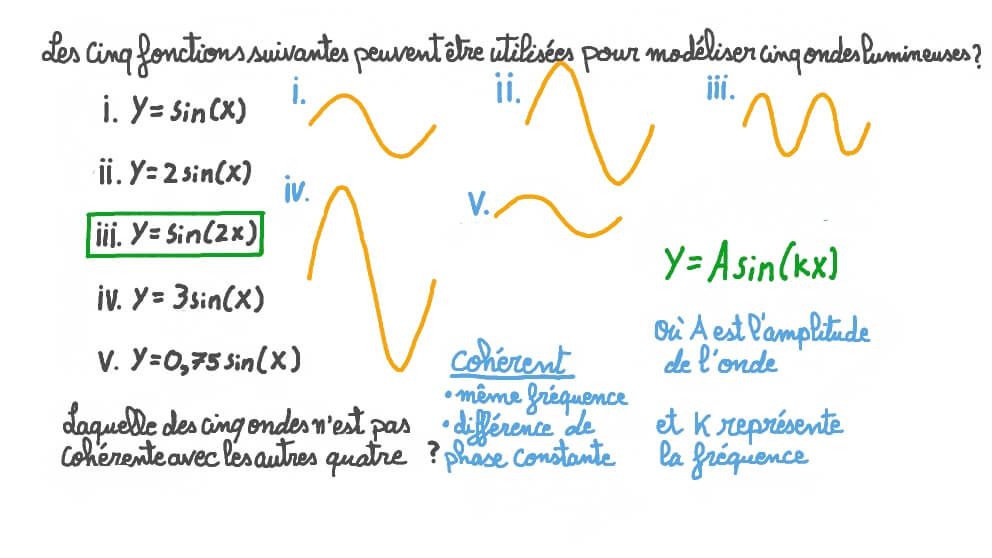 Les cinq fonctions suivantes peuvent être utilisées pour modéliser cinq ondes lumineuses?
i. Y=sin(x)
ii. Y=2sin(x)
iii. Y=sin(2x)
iv. Y=3sin(x)
V. Y=0,75sin(x)
i.
ii.
iii.
iv.
V.
Y=Asin(kx)
Où A est l'amplitude
de l'onde
et K représente
la fréquence
Cohérent
• même fréquence
• différence de
phase constante
Laquelle des cinq ondes n'est pas
Cohérente avec les autres quatre ?